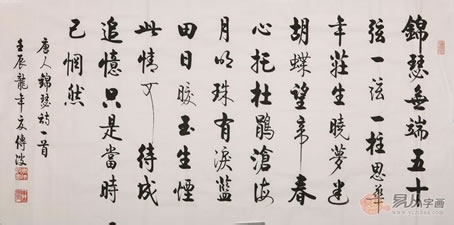 錦瑟無端五十
弦一弦一柱思華
年莊生曉夢迷
胡蝶望帝春
心托杜鵑滄海
月明珠有淚藍
田日暖玉生煙
此情可待成
追憶只是當時
已惘然
唐人錦瑟詩一首
壬辰龍年
字画